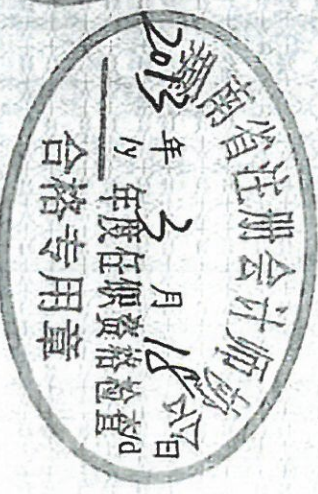 南省注册会计师协会
2013 年 3 月 18 日
/y /d
年度任职资格检查
合格专用章